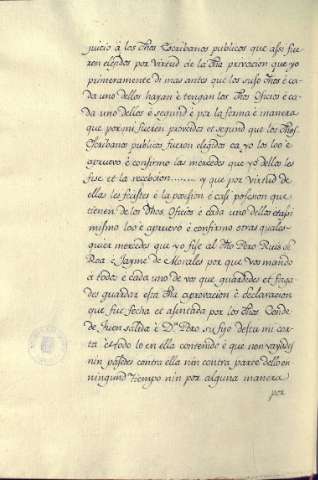 juicio á los dhos Escribanos publicos que assi fue
ren elejidos por virtud de la dha privacion que yo
primeramente di mas antes que los suso dhos è ca
da uno dellos hayan è tengan los dhos Oficios è ca
da uno dellos è segund è por la forma è manera
que por mi fueren proveidos et segund que los dhos
Escribanos publicos fueron elegidos ca yo los loo è
apruevo è confirmo las mercedes que yo dellos les
fise et la recebcion........ y que por virtud de
ellas les fecistes è la posesion è casi posesion que
tienen de los dhos Oficios è cada uno dellos et assi
mismo loo è apruevo è confirmo otras quales-
quier mercedes que yo fise al dho Pero Ruis de
Roa è Jayme de Morales por que vos mando
à todos è cada uno de vos que guardedes et faga
des guardar esta dha aprovacion è declaracion
que fue fecha et asentada por los dhos Conde
de Fuensalida è Dn. Pero su fijo desta mi car
ta è todo lo en ella contenido è que non vayades
nin pasedes contra ella nin contra parte dello en
ningund tiempo nin por alguna manera
por